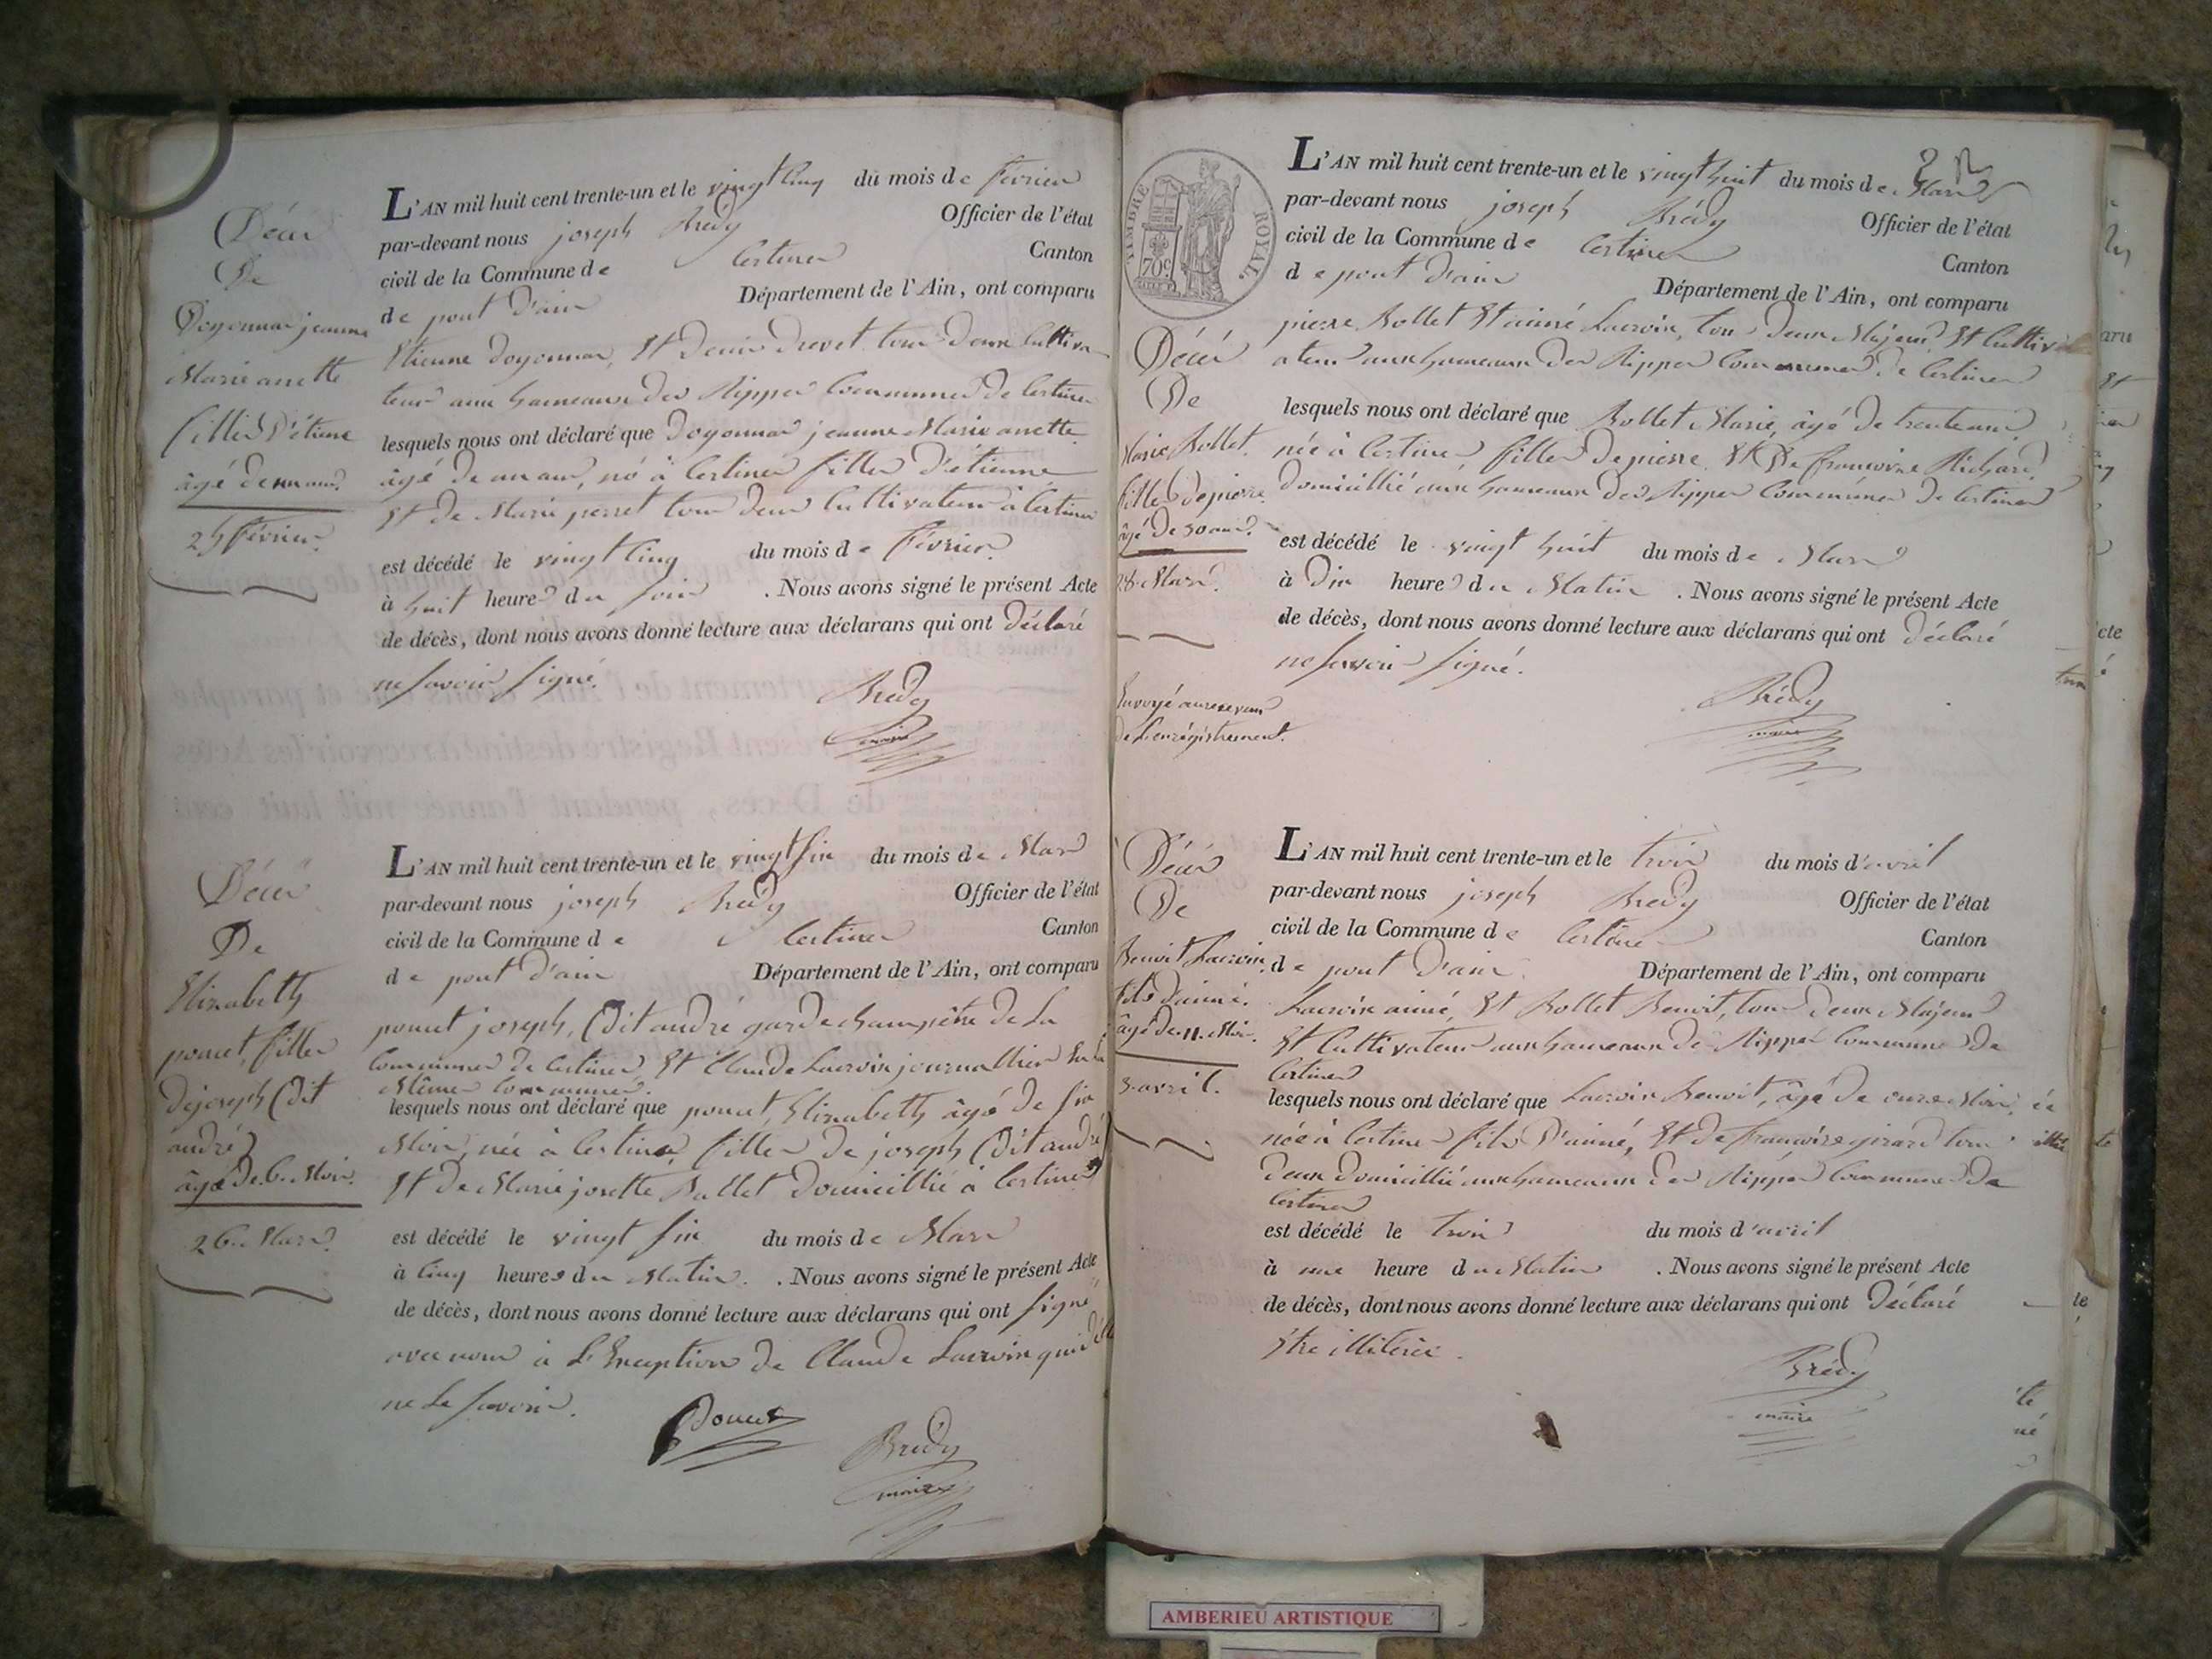 Décès
De
Doyonnas jeanne
Marie anette
fille d'étiene
âgé de un ans
25 février.
L'AN mil huit cent trente-un et le vingt Cinq du mois de février
par-devant nous joseph Brédy Officier de l'état
civil de la Commune de Certines Canton
de pont D'ain Département de l'Ain, ont comparu
Etienne Doyonnas, Et Denis Drevet tous Deux Cultiva-
teur aux hameaux des Rippes Commune De Certines
lesquels nous ont déclaré que Doyonnas jeanne Marie anette
âgé De un ans, né à Certines filles D'étienne
Et de Marie perret tous Deux Cultivateur à Certines
est décédé le vingt Cinq du mois de février.
à huit heures du soir . Nous avons signé le présent Acte
de décès, dont nous avons donné lecture aux déclarans qui ont Déclaré
ne savoir signé.
Brédy
maire
Décès
De
Elizabeth
poncet, filles
De joseph (Dit
andré)
âgé De 6. Mois.
26. Mars.
L'AN mil huit cent trente-un et le vingt six du mois de Mars
par-devant nous joseph Brédy Officier de l'état
civil de la Commune de Certines Canton
de pont D'ain Département de l'Ain, ont comparu
poncet joseph, (Dit andré garde champêtre de La
Commune De Certines Et Claude Lacroix journallier En la
Même Commune.
lesquels nous ont déclaré que poncet, Elizabeth âgé De six
Mois, née à Certines filles De joseph (Dit andré
Et De Marie josette Ballet Domicillié à Certines
est décédé le vingt six du mois de Mars
à Cinq heures du Matin. . Nous avons signé le présent Acte
de décès, dont nous avons donné lecture aux déclarans qui ont signé
avec nous à L'Exception De Claude Lacroix qui
ne Le savoir.
Poncet
Brédy
maire
TIMBRE ROYAL
70c
Décès
De
Marie Rollet.
filles de pierre
âgé De 30 ans.
28. Mars.
Envoyé au receveur
de L'enrégistrement.
L'AN mil huit cent trente-un et le vingt huit du mois de Mars
par-devant nous joseph Brédy Officier de l'état
civil de la Commune de Certines Canton
de pont D'ain Département de l'Ain, ont comparu
pierre Rollet Et aimé Lacroix, tous Deux Majeur Et Cultiv
ateur aux hameaux Des Rippes Commune De Certines
lesquels nous ont déclaré que Rollet Marie, âgé De trente ans
née à Certines, filles De pierre Et De françoise Richard
Domicillié aux hameaux Des Rippes Commune De Certines
est décédé le vingt huit du mois de Mars
à Dix heures du Matin . Nous avons signé le présent Acte
de décès, dont nous avons donné lecture aux déclarans qui ont Déclaré
ne savoir signé.
Brédy
maire
Décès
De
Benoit Lacroix,
fils D'aimé.
âgé De 11. Mois.
3. avril.
L'AN mil huit cent trente-un et le trois du mois d'avril
par-devant nous joseph Brédy Officier de l'état
civil de la Commune de Certines Canton
de pont D'ain Département de l'Ain, ont comparu
Lacroix aimé, Et Rollet Benoit, tous Deux Majeur
Et Cultivateur aux hameaux De Rippes Commune De
Certines
lesquels nous ont déclaré que Lacroix Benoit, âgé De onze Mois,
née à Certines fils D'aimé, Et De françoise girard tous
Deux Domicillié aux hameaux Des Rippes Commune De
Certines
est décédé le trois du mois d'avril
à une heure du Matin . Nous avons signé le présent Acte
de décès, dont nous avons donné lecture aux déclarans qui ont Déclaré
Etre illitéréé.
Brédy
maire
AMBERIEU ARTISTIQUE